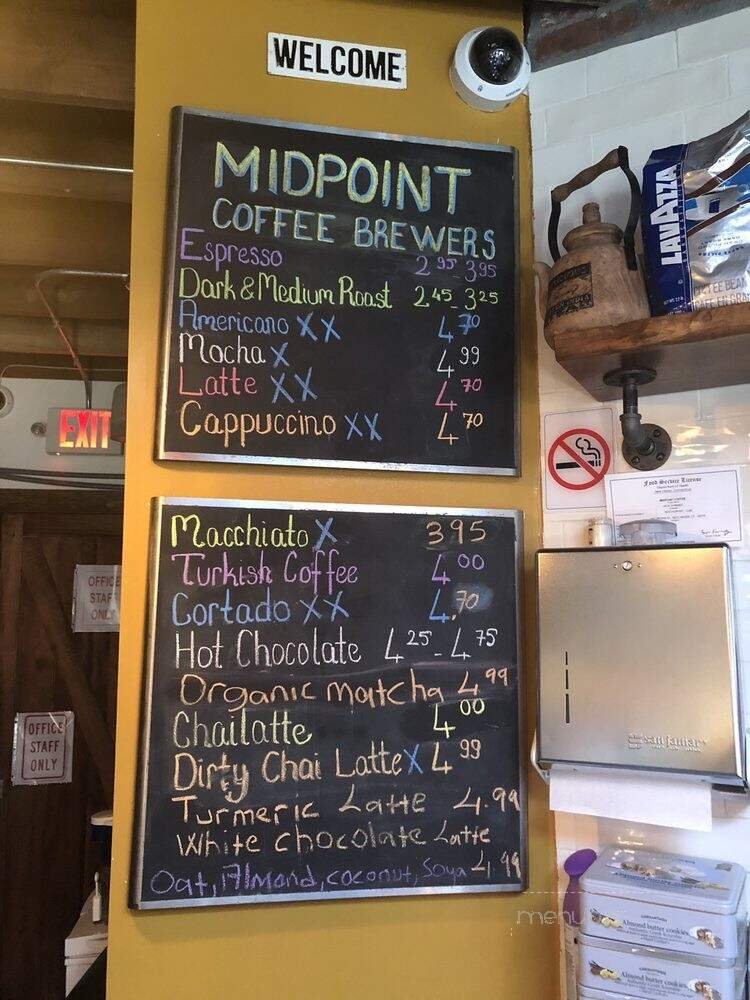 WELCOME
MIDPOINT
COFFEE BREWERS
Espresso 2.95-3.95
Dark & Medium Roast 2.45-3.25
Americano XX 4.70
Mocha X 4.99
Latte XX 4.70
Cappuccino XX 4.70
Macchiato X 3.95
Turkish Coffee 4.00
Cortado XX 4.70
Hot Chocolate 4.25-4.75
Organic matcha 4.99
Chailatte 4.00
Dirty Chai Latte X 4.99
Turmeric Latte 4.99
White chocolate Latte
Oat, Almond, coconut, Soya 4.99
EXIT
OFFICE
STAFF
ONLY
OFFICE
STAFF
ONLY
LAVAZZA
Food Service License
san jamar
Almond butter cookies
Almond butter cookies
menu